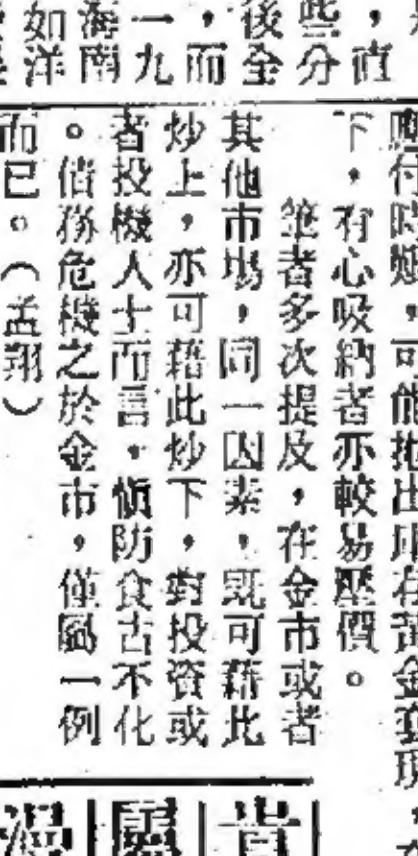 ，些後，一海如
直分全而九南洋
應付時艱，可能拋出庫存黃金套現，在
下，有心吸納者亦較易壓價。
筆者多次提及，在金市或者
其他市場，同一因素，既可藉此
炒上，亦可藉此炒下，對投資或
者投機人士而言，慎防食古不化
。債務危機之於金市，僅屬一例
而已。（孟翔）